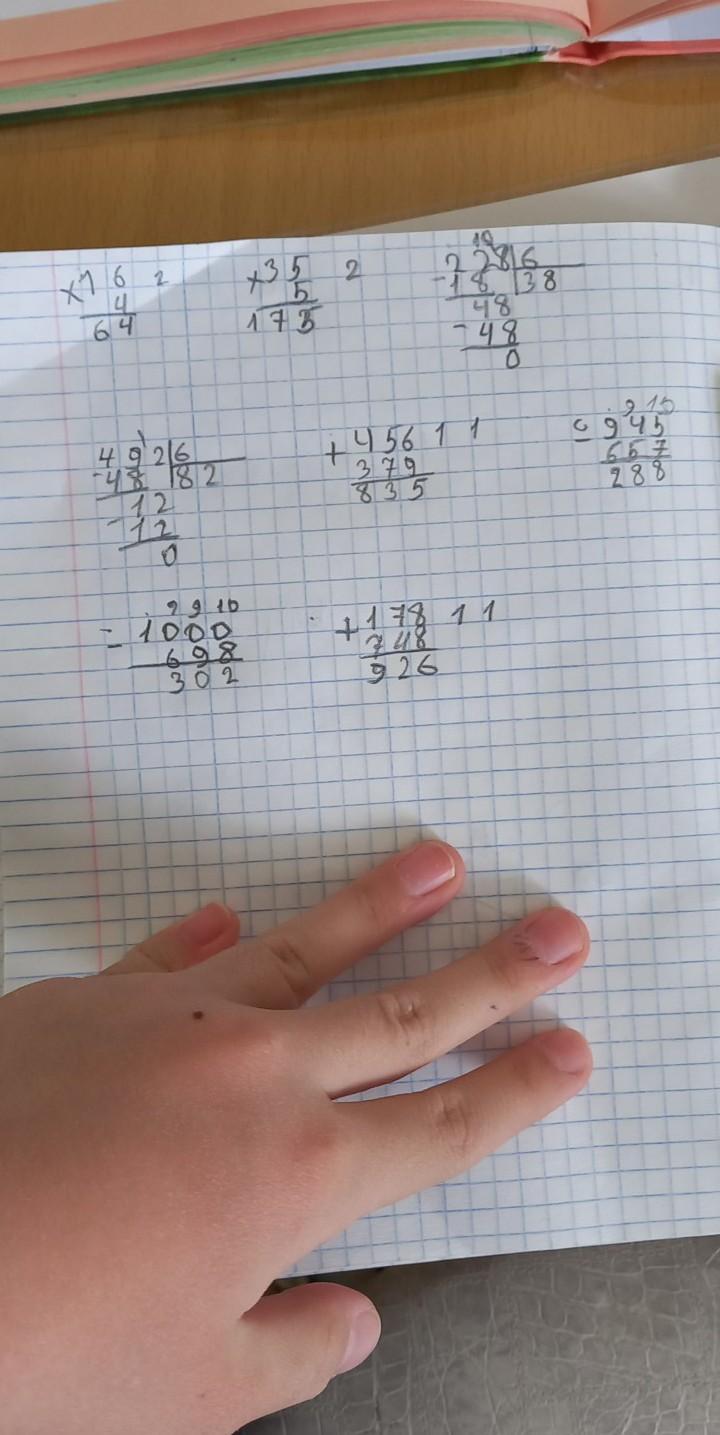 ×16 2 ×35 2 10
4 5 228|6
64 175 -18 |38
48
-48
0
1 . 9 15
492|6 +456 1 1 -945
-48 |82 379 657
12 835 288
-12
0
. 9 9 10
-1000 +178 1 1
698 748
302 926